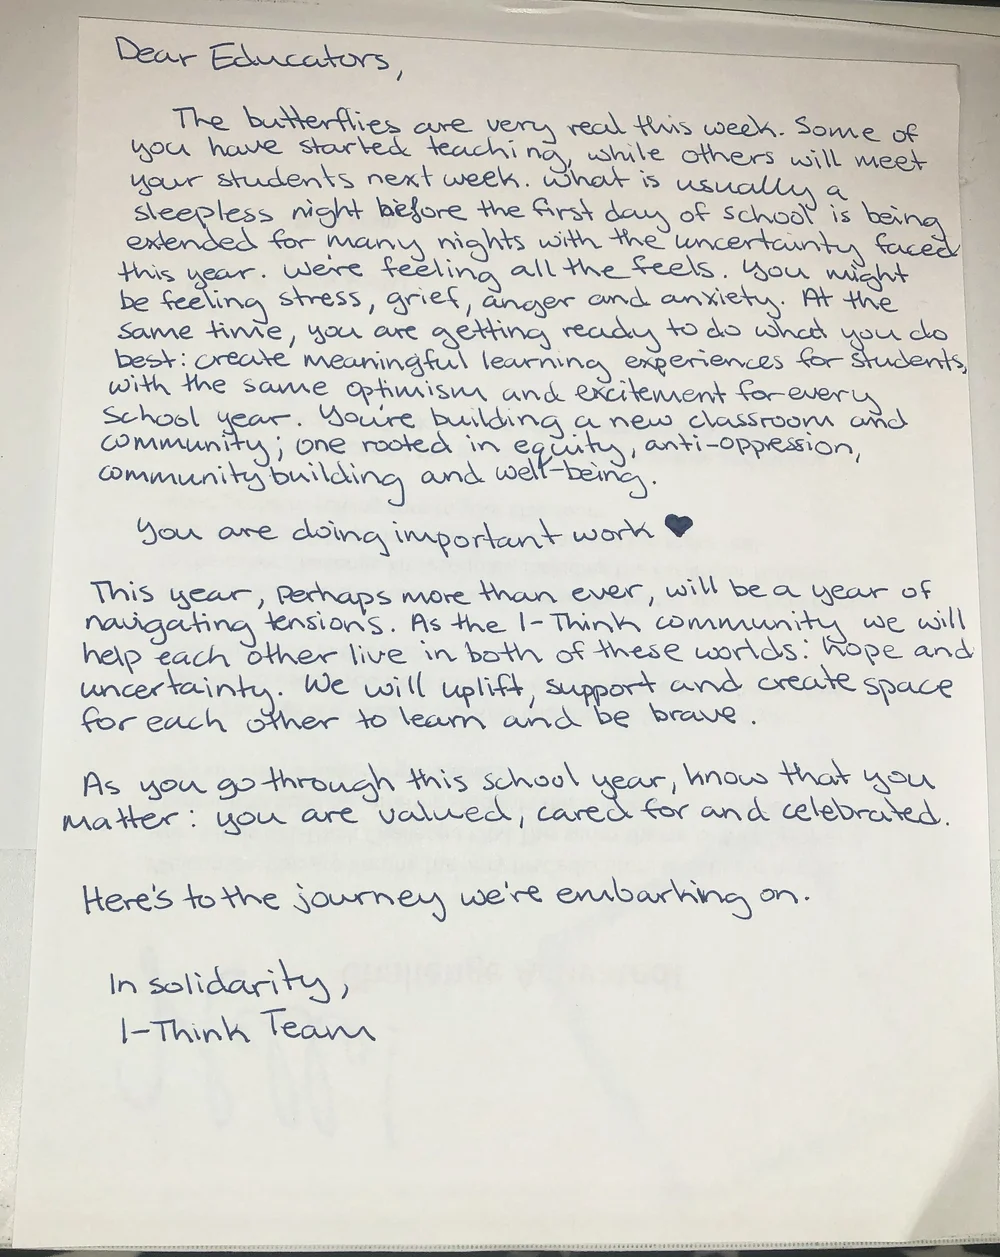 Dear Educators,
The butterflies are very real this week. Some of
you have started teaching, while others will meet
your students next week. What is usually a
sleepless night before the first day of school is being
extended for many nights with the uncertainty faced
this year. We're feeling all the feels. You might
be feeling stress, grief, anger and anxiety. At the
same time, you are getting ready to do what you do
best: create meaningful learning experiences for students,
with the same optimism and excitement for every
school year. You're building a new classroom and
community; one rooted in equity, anti-oppression,
community building and well-being.
You are doing important work ♥
This year, perhaps more than ever, will be a year of
navigating tensions. As the I-Think community we will
help each other live in both of these worlds: hope and
uncertainty. We will uplift, support and create space
for each other to learn and be brave.
As you go through this school year, know that you
matter: you are valued, cared for and celebrated.
Here's to the journey we're embarking on.
In solidarity,
I-Think Team